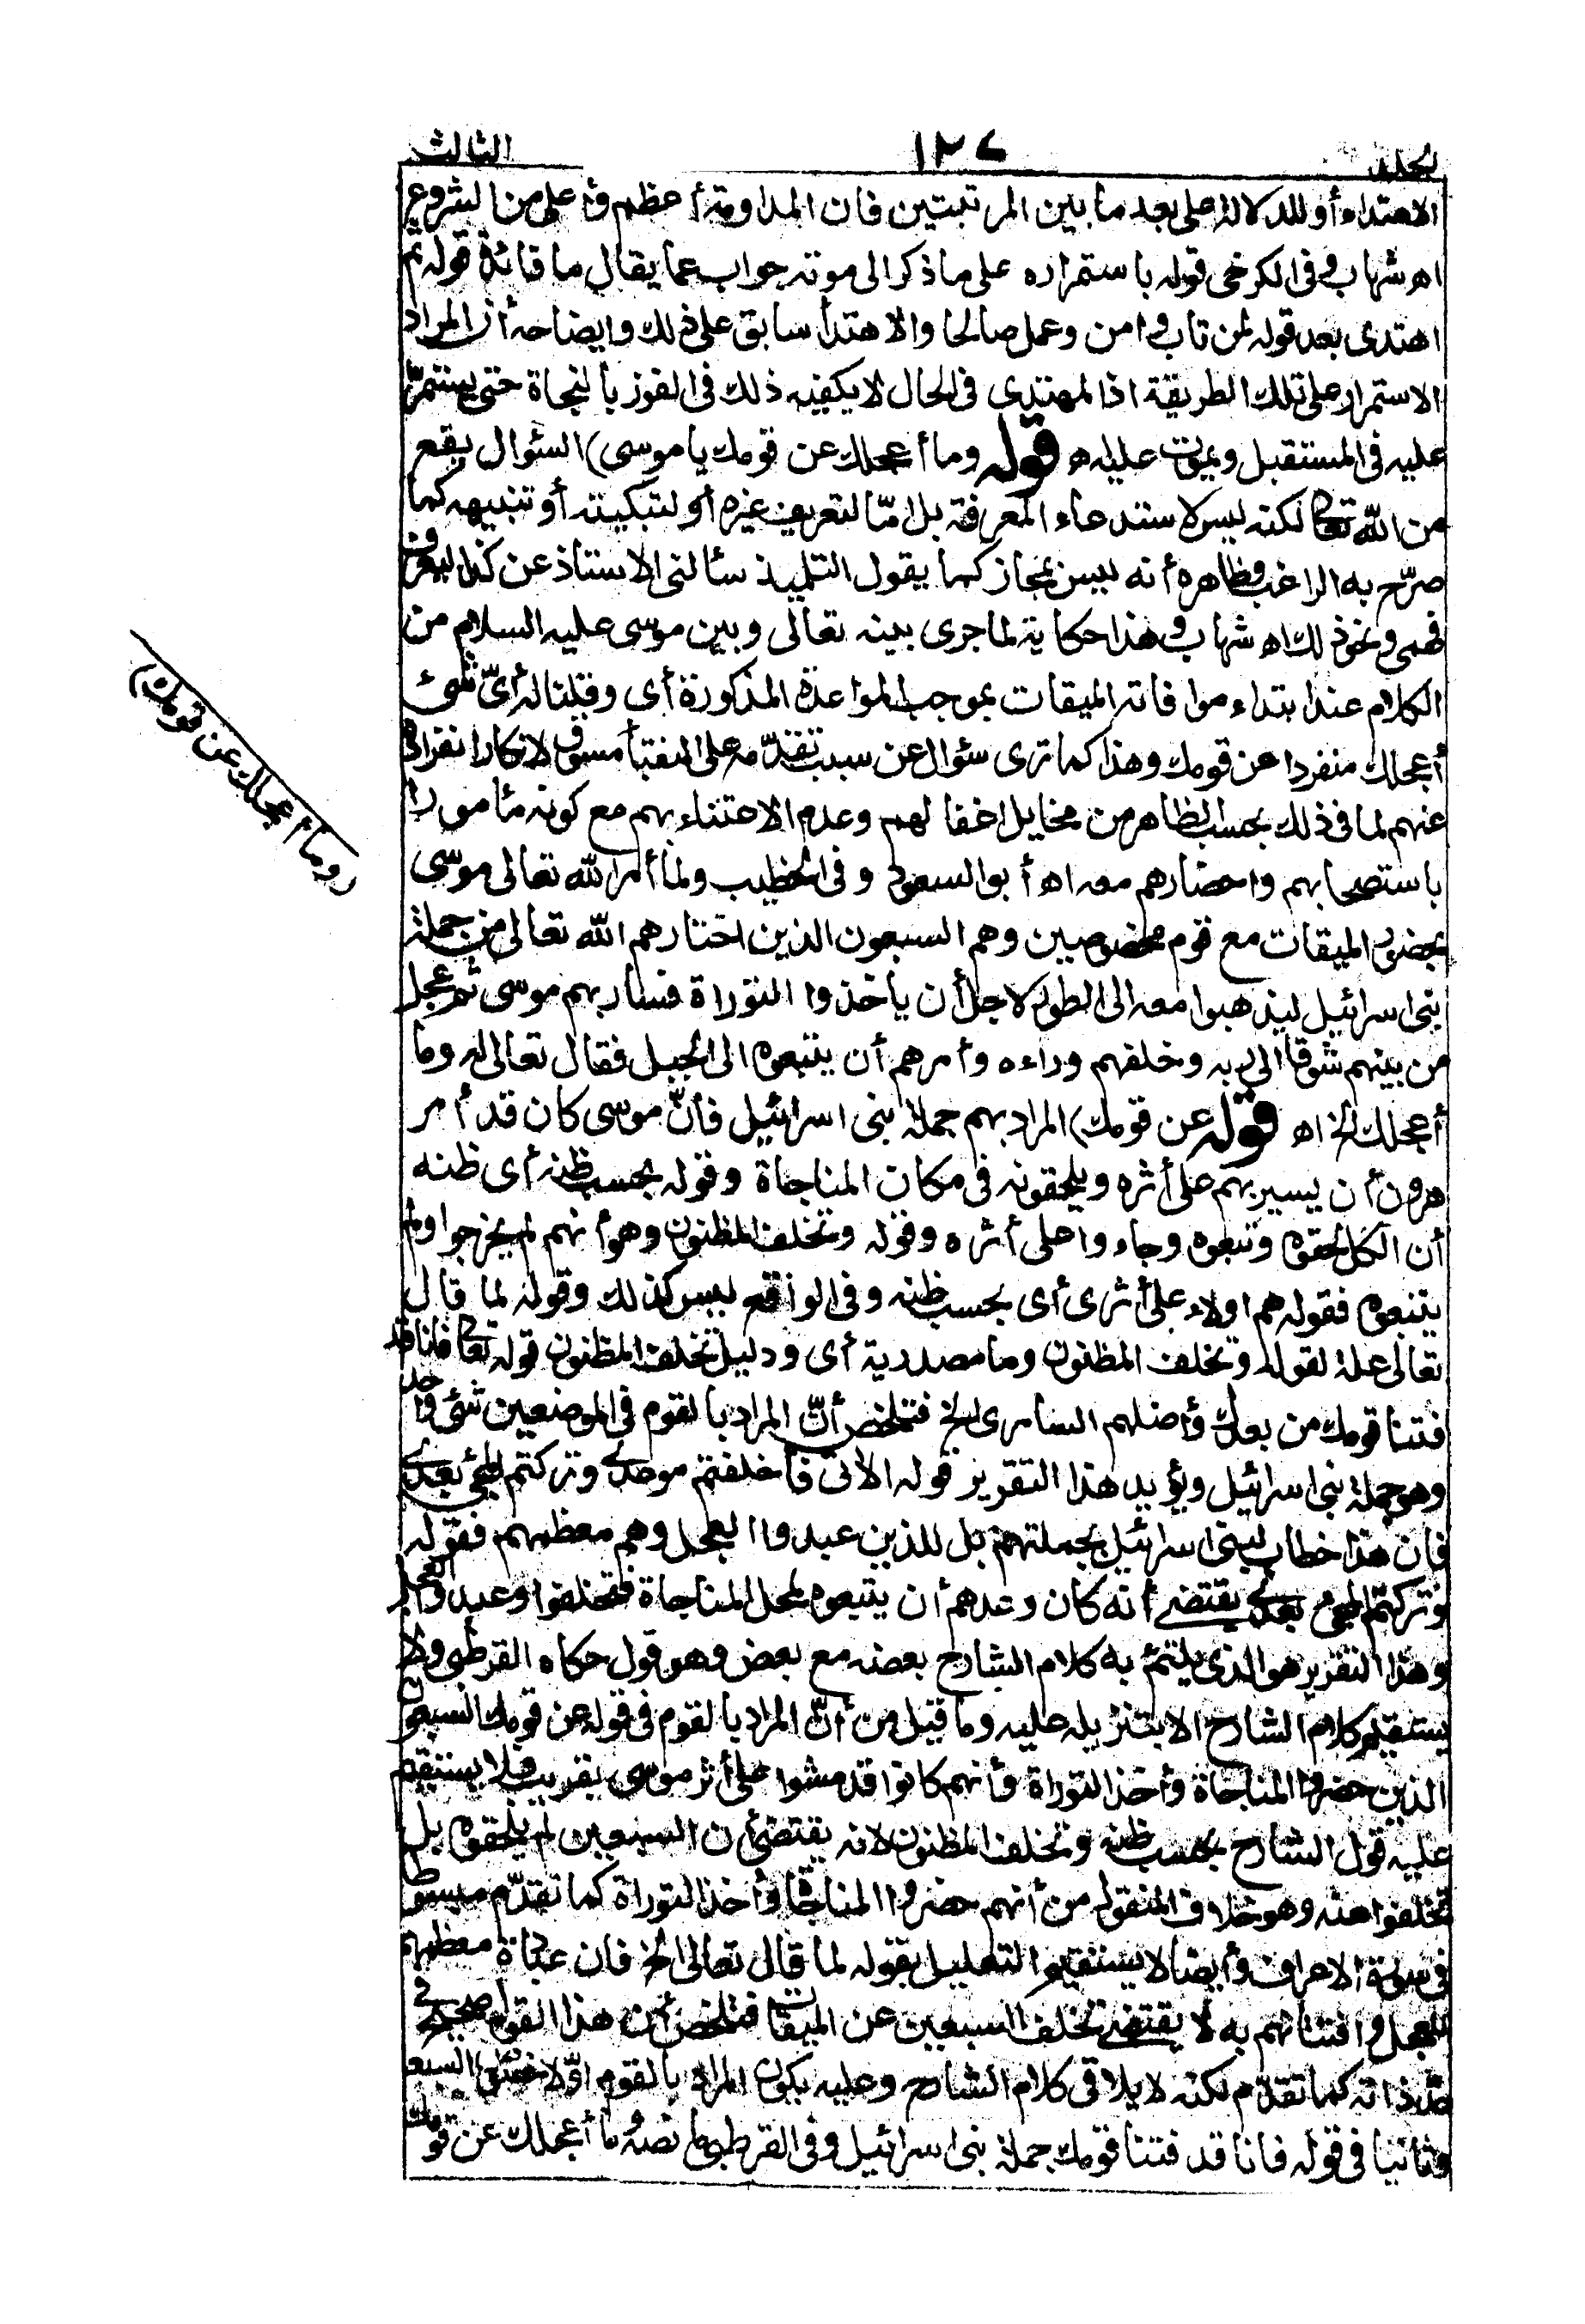 الجلد ١٢٧ الثالث
الاهتداء أو للدلالة على بعد ما بين المرتبتين فان المداومة أعظم وأعلى من الشروع
اه شهاب وفى الكرخى قوله باستمراره على ما ذكر الى موته جواب عما يقال ما فائدة قوله ثم
اهتدى بعد قوله لمن تاب وامن وعمل صالحا والاهتدأ سابق على ذلك وايضاحه أن المراد
الاستمرار على تلك الطريقة اذ المهتدى فى الحال لا يكفيه ذلك فى الفوز بالنجاة حتى يستمرّ
عليه فى المستقبل ويموت عليه اه قوله وما أعجلك عن قومك يا موسى) السئوال يقع
من الله تعالى لكنه ليس لاستدعاء المعرفة بل امّا لتعريف غيره أو لتبكيته أو تنبيهه كما
صرّح به الراغب وظاهره أنه ليس بمجاز كما يقول التلميذ سألنى الاستاذ عن كذا ليعرف
فهمى ونحو ذلك اه شهاب وهذا حكاية لما جرى بينه تعالى وبين موسى عليه السلام من
الكلام عند ابتداء موافاته الميقات بموجب المواعدة المذكورة أى وقلنا له أىّ شئ
أعجلك منفردا عن قومك وهذا كما ترى سئوال عن سبب تقدّمه على النقبأ مسوق لانكار انفراده
عنهم لما فى ذلك بحسب الظاهر من مخايل اغفالهم وعدم الاعتناء بهم مع كونه مأمورا
باستصحابهم واحضارهم معه اه أبو السعود وفى الخطيب ولما أمر الله تعالى موسى
بحضور الميقات مع قوم مخصوصين وهم السبعون الذين اختارهم الله تعالى من جملة
بنى اسرائيل ليذهبوا معه الى الطور لاجل أن يأخذوا التوراة فسار بهم موسى ثم عجل
من بينهم شوقا الى ربه وخلفهم وراءه وأمرهم أن يتبعوه الى الجبل فقال تعالى له وما
أعجلك الخ اه قوله عن قومك) المراد بهم جملة بنى اسرائيل فانّ موسى كان قد أمر
هرون أن يسير بهم على أثره ويلحقونه فى مكان المناجاة وقوله بحسب ظنه أى ظنه
أن الكل لحقوه وتبعوه وجاءوا على أثره وقوله وتخلف المظنون وهو أنهم لم يخرجوا ولم
يتبعوه فقوله هم اولاء على أثرى أى بحسب ظنه وفى الواقع ليس كذلك وقوله لما قال
تعالى علة لقوله وتخلف المظنون وما مصدرية أى ودليل تخلف المظنون قوله تعالى فانا قد
فتنا قومك من بعدك وأضلهم السامرى الخ فتلخص أنّ المراد بالقوم فى الموضعين شئ واحد
وهو جملة بنى اسرائيل ويؤيد هذا التقرير قوله الآتى فأخلفتم موعدى وتركتم المجئ بعدى
فان هذا خطاب لبنى اسرائيل بجملتهم بل للذين عبدوا العجل وهم معظمهم فقوله
وتركتم المجئ بعدى يقتضى أنه كان وعدهم أن يتبعوه لمحل المناجاة فتخلفوا وعبدوا العجل
وهذا التقرير هو الذى يلتئم به كلام الشارح بعضه مع بعض وهو قول حكاه القرطبى ولا
يستقيم كلام الشارح الا بتنزيله عليه وما قيل من أنّ المراد بالقوم فى قوله عن قومك السبعون
الذين حضروا المناجاة وأخذ التوراة وأنهم كانوا قد مشوا على أثر موسى بقريب فلا يستقيم
عليه قول الشارح بحسب ظنه وتخلف المظنون لانه يقتضى أن السبعين لم يلحقوه بل
تخلفوا عنه وهو خلاف المنقول من أنهم حضروا المناجاة وأخذ التوراة كما تقدّم مبسوطا
فى سورة الاعراف وأيضا لا يستقيم التعليل بقوله لما قال تعالى الخ فان عبادة معظمهم
للعجل وافتتانهم به لا يقتضى تخلف السبعين عن الميقات فتلخص أن هذا القول صحيح فى
حدّ ذاته كما تقدّم لكنه لا يلاقى كلام الشارح وعليه يكون المراد بالقوم اوّلا السبعين
وثانيا فى قوله فانا قد فتنا قومك جملة بنى اسرائيل وفى القرطبى ما نصه وما أعجلك عن قومك
(وما أعجلك عن قومك)